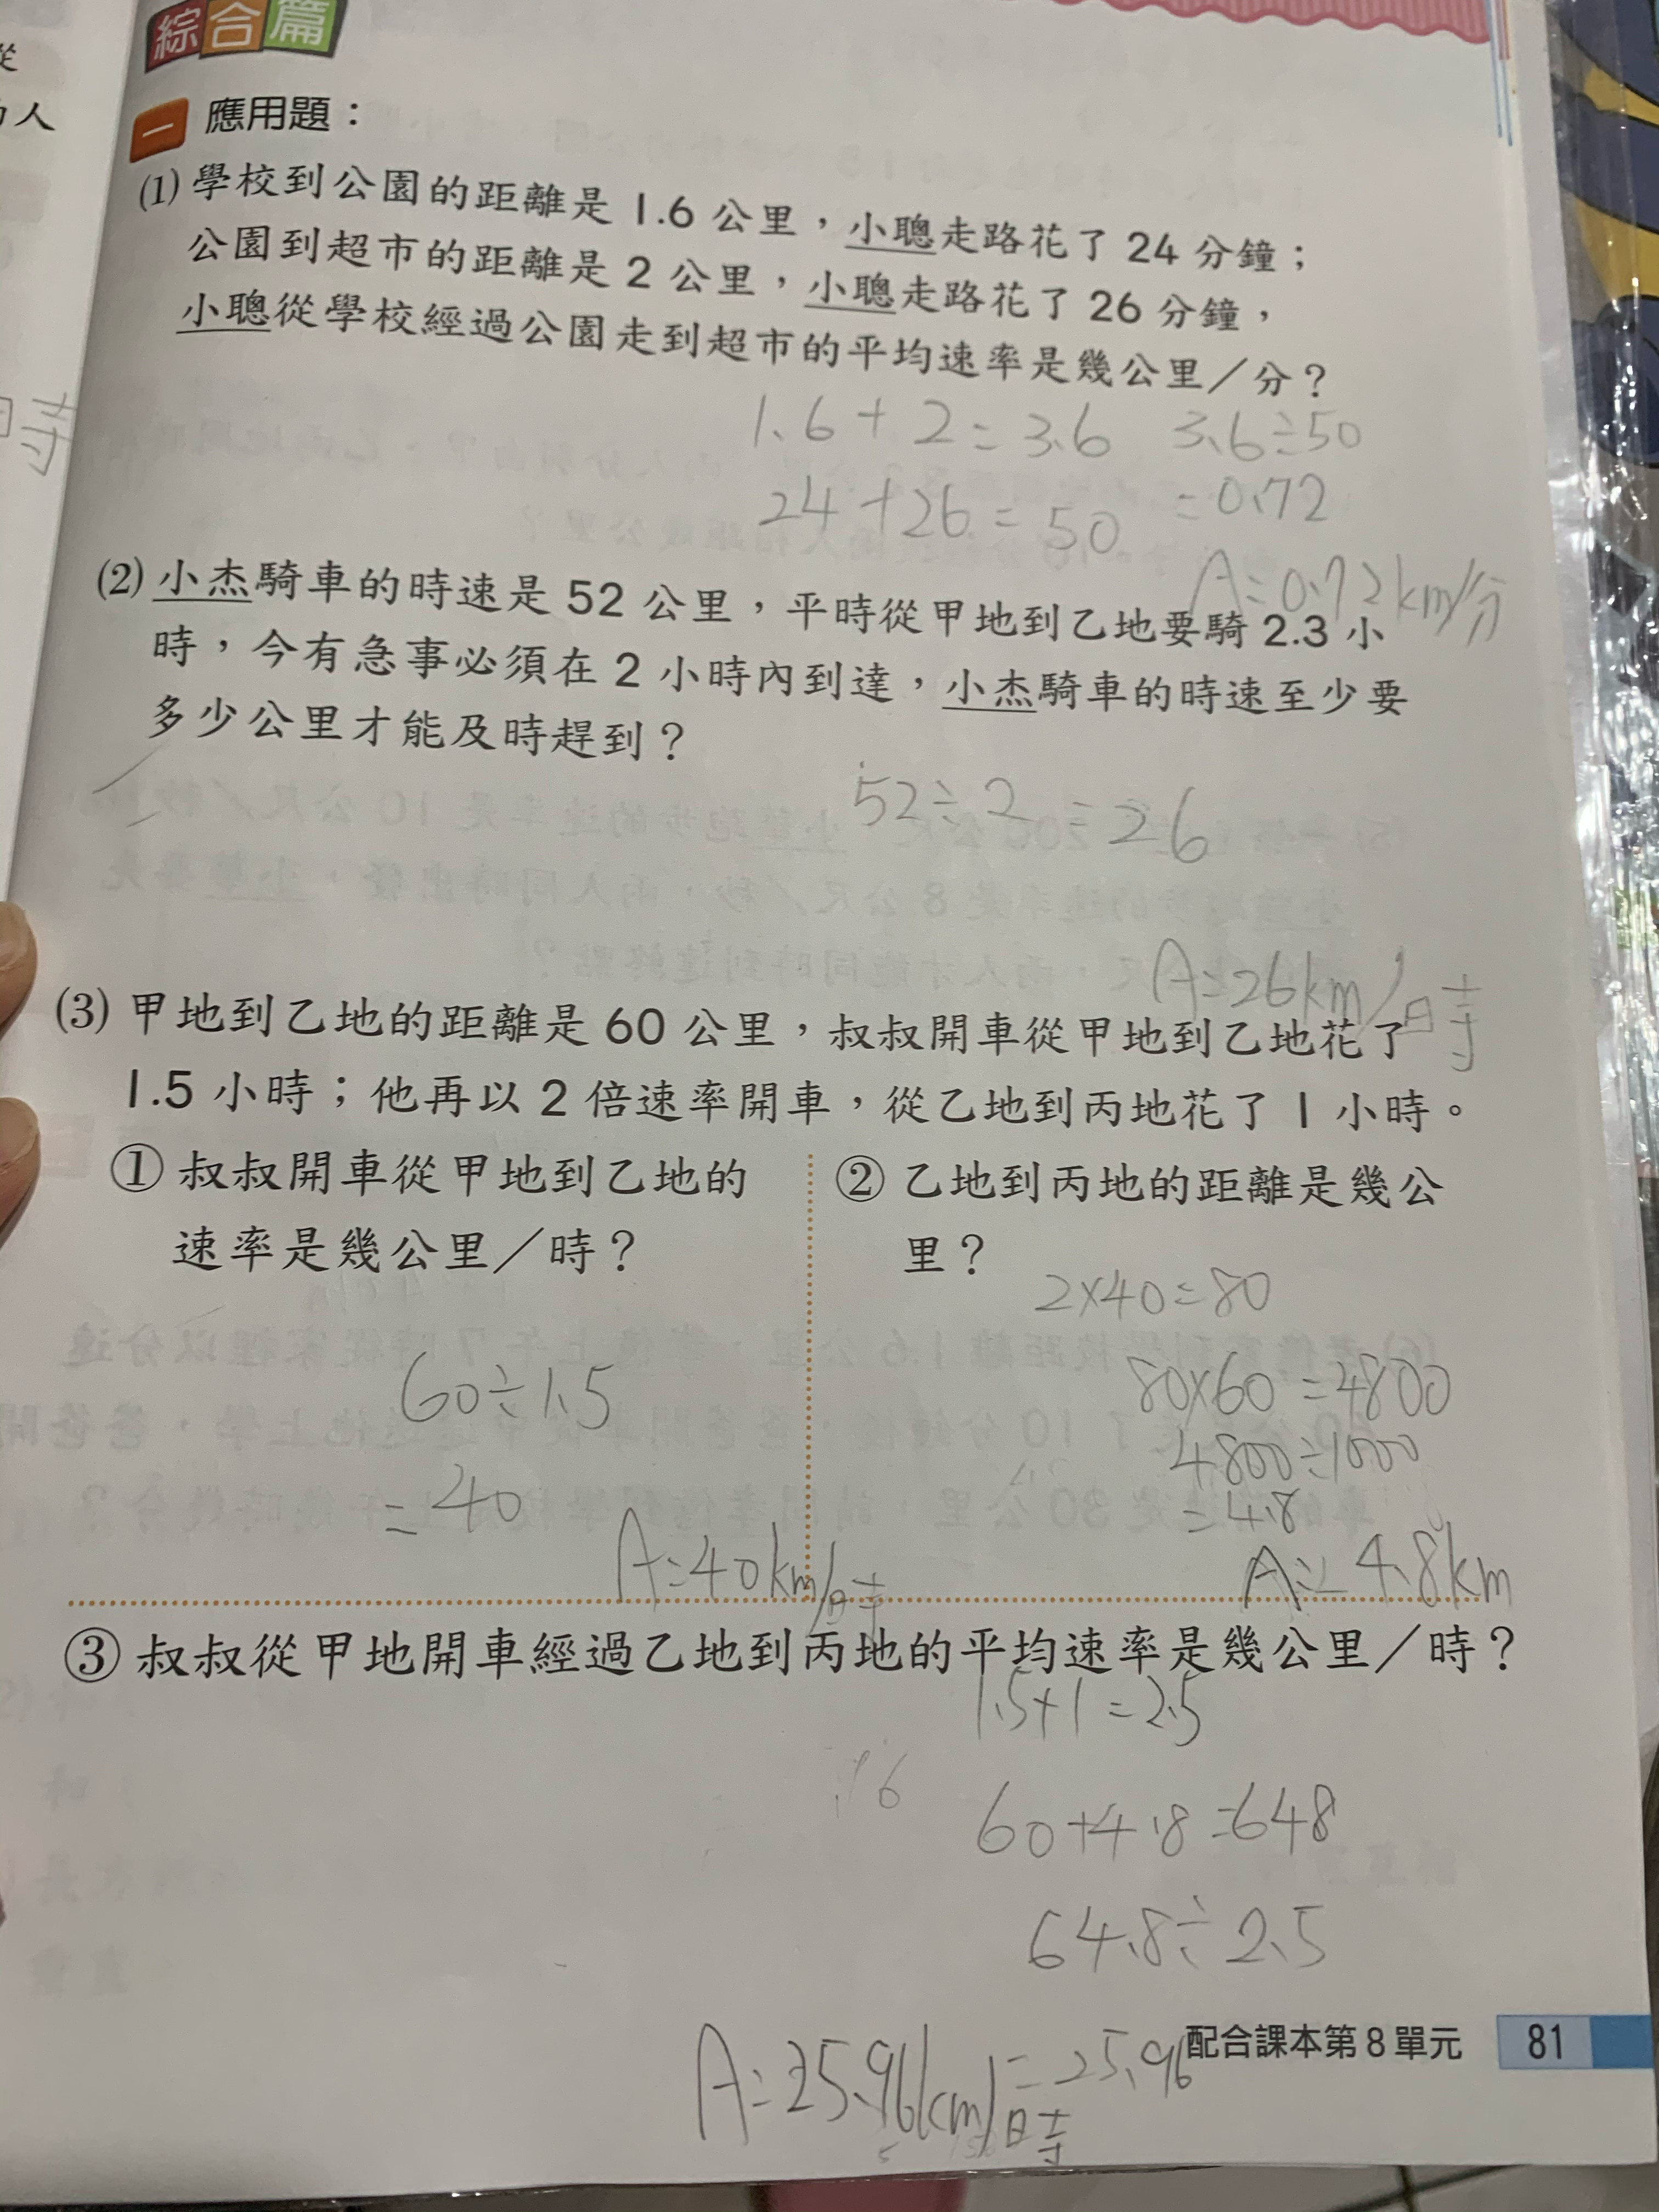 綜合篇
一 應用題：
(1) 學校到公園的距離是 1.6 公里，小聰走路花了 24 分鐘；
公園到超市的距離是 2 公里，小聰走路花了 26 分鐘，
小聰從學校經過公園走到超市的平均速率是幾公里／分？
1.6+2=3.6 3.6÷50
24+26=50 =0.72
A=0.72km/分
(2) 小杰騎車的時速是 52 公里，平時從甲地到乙地要騎 2.3 小
時，今有急事必須在 2 小時內到達，小杰騎車的時速至少要
多少公里才能及時趕到？
52÷2=26
A=26km/時
(3) 甲地到乙地的距離是 60 公里，叔叔開車從甲地到乙地花了
1.5 小時；他再以 2 倍速率開車，從乙地到丙地花了 1 小時。
① 叔叔開車從甲地到乙地的
速率是幾公里／時？
60÷1.5
=40
A=40km/時
② 乙地到丙地的距離是幾公
里？
2×40=80
80×60=4800
4800÷1000
=4.8
A=4.8km
③ 叔叔從甲地開車經過乙地到丙地的平均速率是幾公里／時？
1.5+1=2.5
60+4.8=648
64.8÷2.5
=25.96
A=25.96km/時
配合課本第 8 單元 81
時
從
人